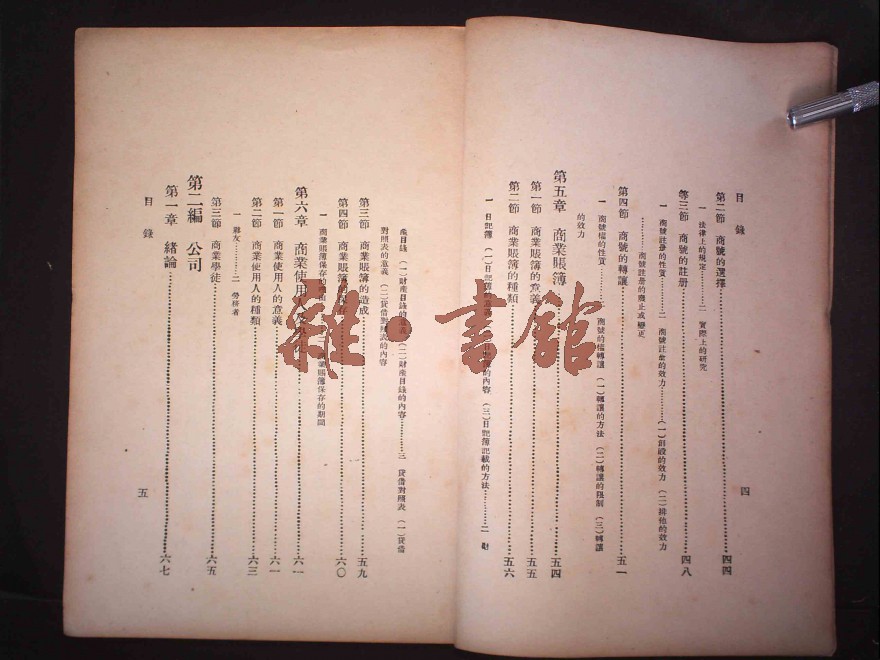 目錄
第二節 商號的選擇……四四
一 法律上的規定……二 實際上的研究
等三節 商號的註册……四八
一 商號註册的性質……二 商號註册的效力……(一)創設的效力 (二)排他的效力
……商號註册的廢止或變更
第四節 商號的轉讓……五一
一 商號權的性質……商號的權轉讓 (一)轉讓的方法 (二)轉讓的限制 (三)轉讓
的效力
第五章 商業賬簿……五四
第一節 商業賬簿的意義……五五
第二節 商業賬簿的種類……五六
一 日記簿 (一)日記簿的意義 的內容 (三)日記簿記載的方法……二 財
四
產目錄 (一)財產目錄的意義 (二)財產目錄的內容……三 貸借對照表 (一)貸借
對照表的意義 (二)貸借對照表的內容
第三節 商業賬簿的造成……五九
第四節 商業賬簿的保存……六〇
一 商業賬簿保存的 商業賬簿保存的期間
第六章 商業使用人及學徒……六一
第一節 商業使用人的意義……六一
第二節 商業使用人的種類……六三
一 夥友……二 勞務者
第三節 商業學徒……六五
第二編 公司
第一章 緒論……六七
目錄
五
雜·書館